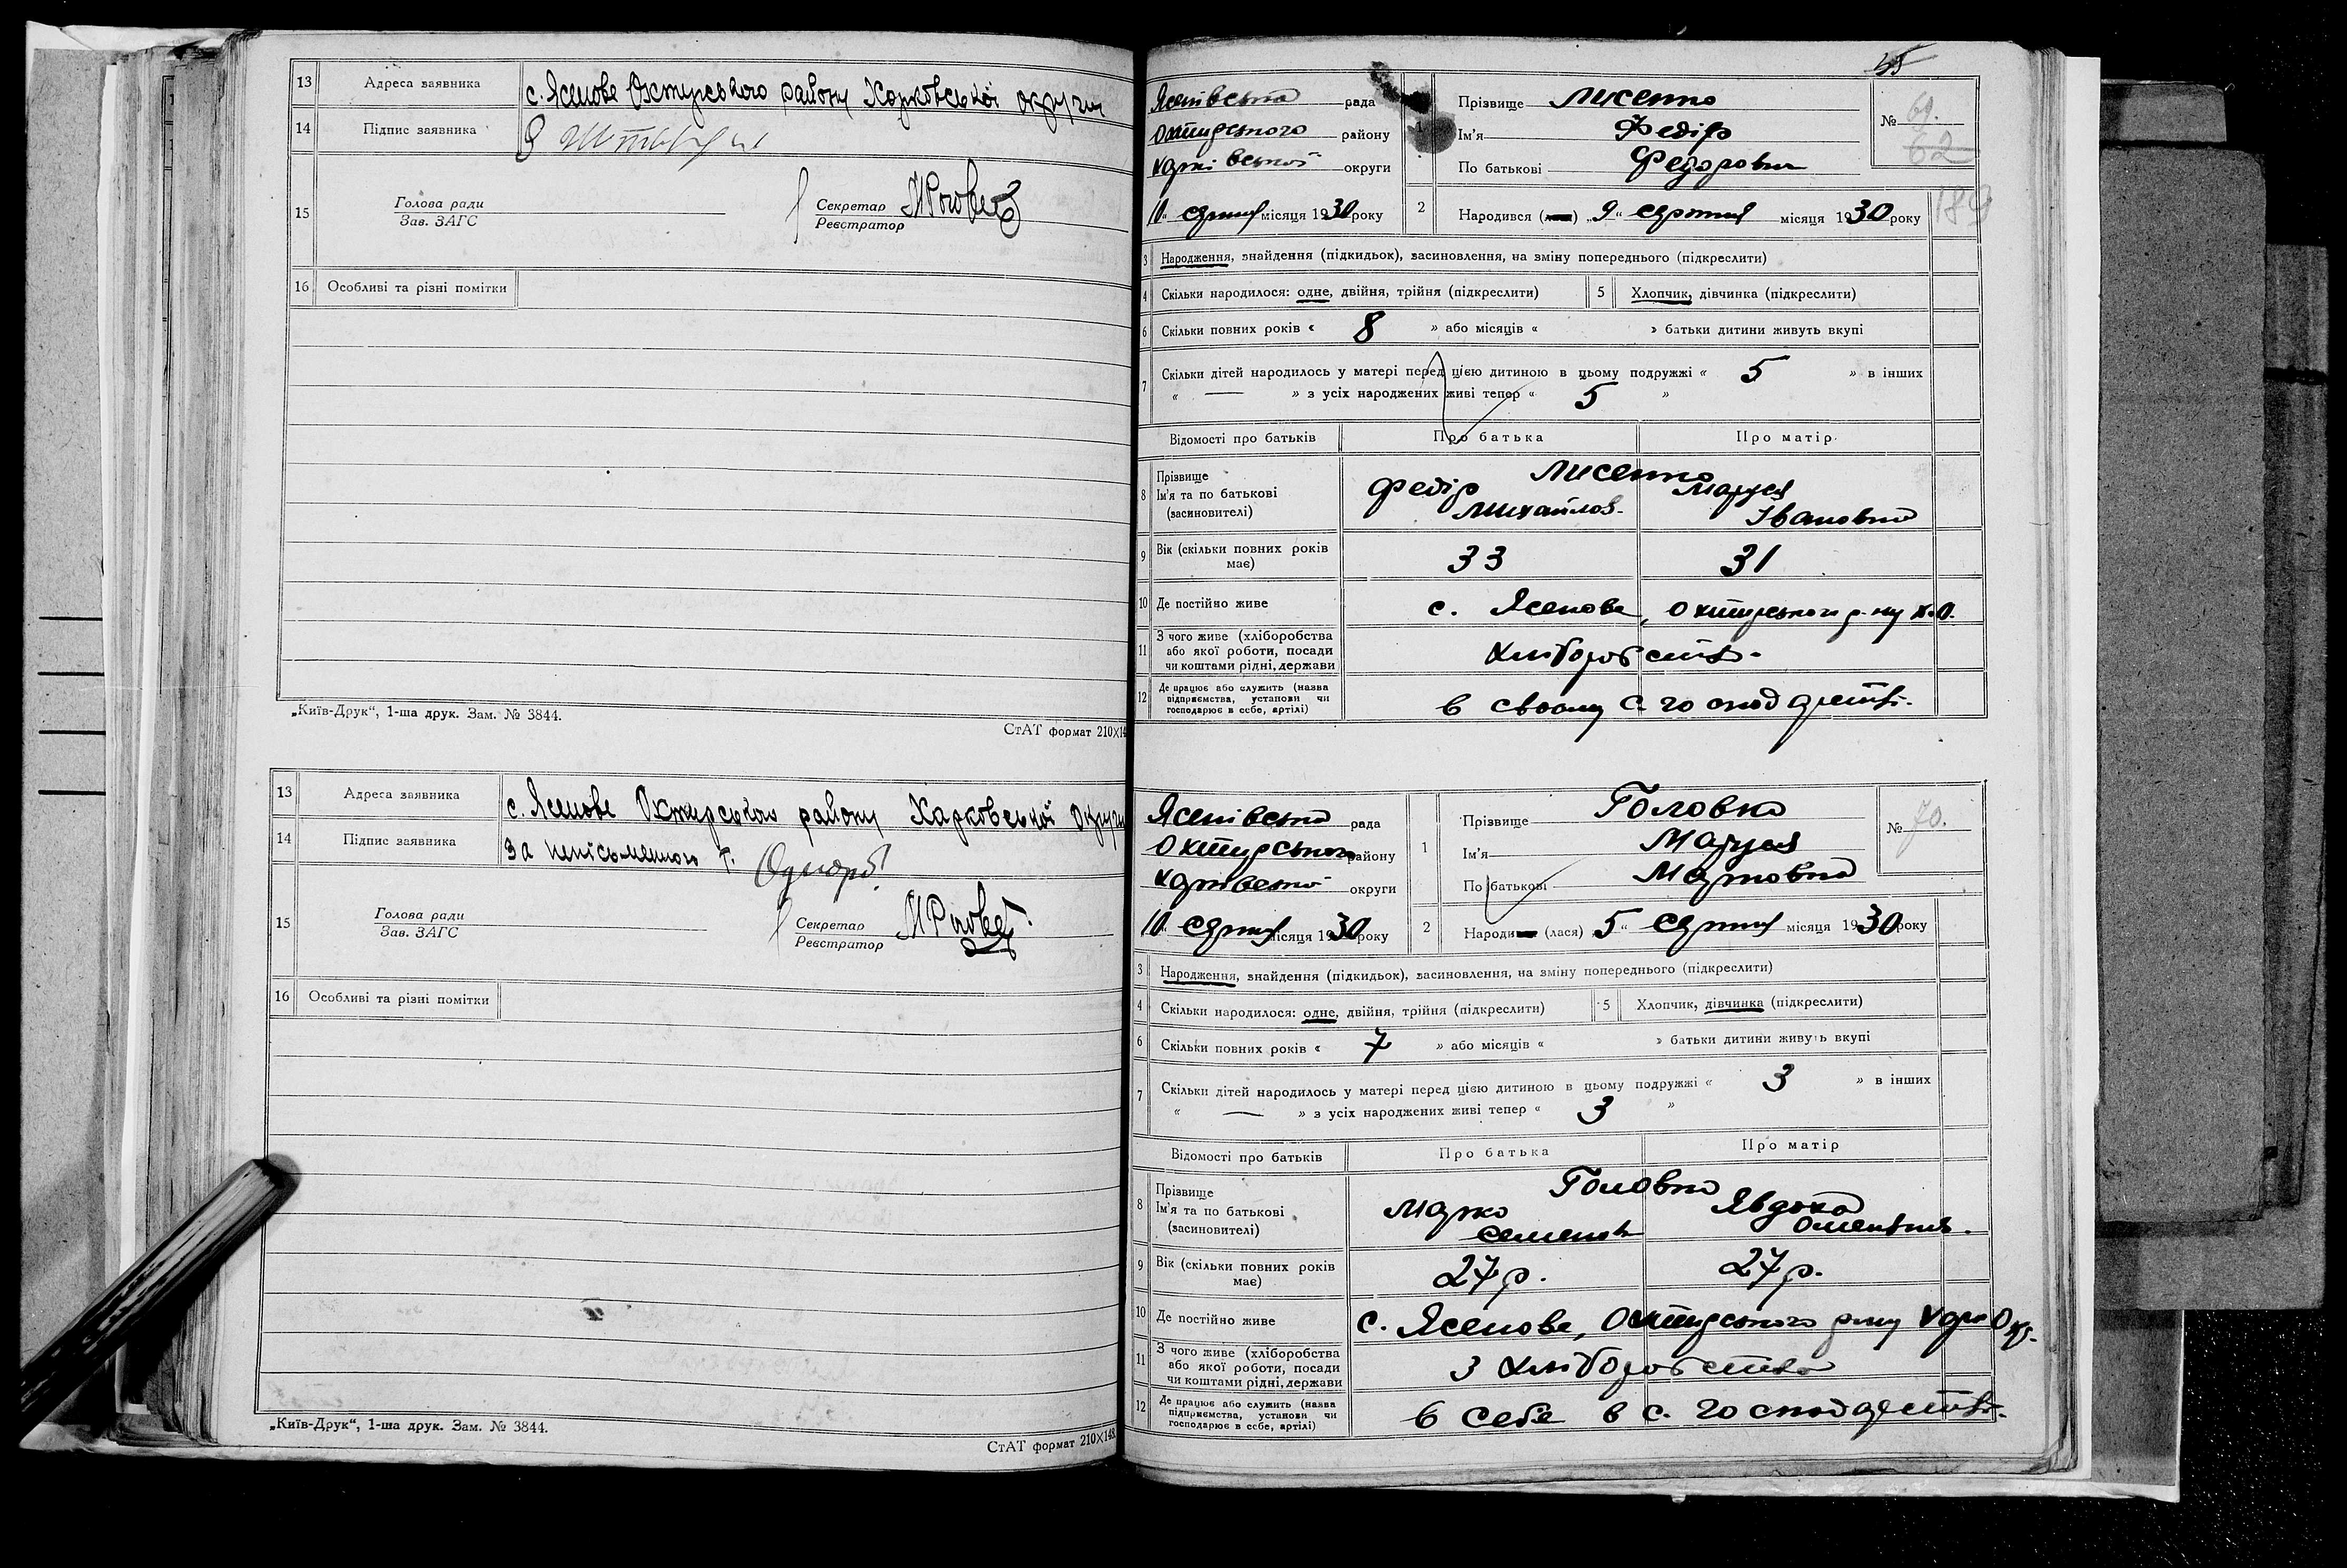 13 Адреса заявника с. Ясенове Охтирського району Харковської округи
14 Підпис заявника
15 Голова ради
Зав. ЗАГС
Секретар
Реєстратор
16 Особливі та різні помітки
„Київ-Друк“, 1-ша друк. Зам. № 3844.
СтАТ формат 210×14
13 Адреса заявника с. Ясенове Охтирського району Харковської округи
14 Підпис заявника За непісьменного
15 Голова ради
Зав. ЗАГС
Секретар
Реєстратор
16 Особливі та різні помітки
„Київ-Друк“, 1-ша друк. Зам. № 3844.
СтАТ формат 210×148
55
Ясенівська рада
Охтирського району
Харківської округи
10 серпня місяця 1930 року
1 Прізвище Лисенко
Ім'я Федір
По батькові Федорович
№ 69.
62
189
2 Народився „9“ серпня місяця 1930 року
3 Народження, знайдення (підкидьок), засиновлення, на зміну попереднього (підкреслити)
4 Скільки народилося: одне, двійня, трійня (підкреслити) 5 Хлопчик, дівчинка (підкреслити)
6 Скільки повних років « 8 » або місяців « » батьки дитини живуть вкупі
7 Скільки дітей народилось у матері перед цією дитиною в цьому подружжі « 5 » в інших
« — » з усіх народжених живі тепер « 5 »
Відомості про батьків Про батька Про матір
8 Прізвище Лисенко
Ім'я та по батькові Федір Маруся
(засиновителі) Михайлов. Івановна
9 Вік (скільки повних років має) 33 31
10 Де постійно живе с. Ясенове, Охтирського р-ну Х.О.
11 З чого живе (хліборобства
або якої роботи, посади
чи коштами рідні, держави хліборобство
12 Де працює або служить (назва
підприємства, установи чи
господарює в себе, артілі) в своому с. господарстві.
Ясенівська рада
Охтирського району
Харківської округи
10 серпня місяця 1930 року
1 Прізвище Головко
Ім'я Маруся
По батькові Марковна
№ 70.
2 Народи (лася) „5“ серпня місяця 1930 року
3 Народження, знайдення (підкидьок), засиновлення, на зміну попереднього (підкреслити)
4 Скільки народилося: одне, двійня, трійня (підкреслити) 5 Хлопчик, дівчинка (підкреслити)
6 Скільки повних років « 7 » або місяців « » батьки дитини живуть вкупі
7 Скільки дітей народилось у матері перед цією дитиною в цьому подружжі « 3 » в інших
« — » з усіх народжених живі тепер « 3 »
Відомості про батьків Про батька Про матір
8 Прізвище Головко
Ім'я та по батькові Марко Явдоха
(засиновителі) Семенов
9 Вік (скільки повних років має) 27 р. 27 р.
10 Де постійно живе с. Ясенове, Охтирського р-ну Харк Окр.
11 З чого живе (хліборобства
або якої роботи, посади
чи коштами рідні, держави З хліборобства
12 Де працює або служить (назва
підприємства, установи чи
господарює в себе, артілі) в себе в с. господарстві.